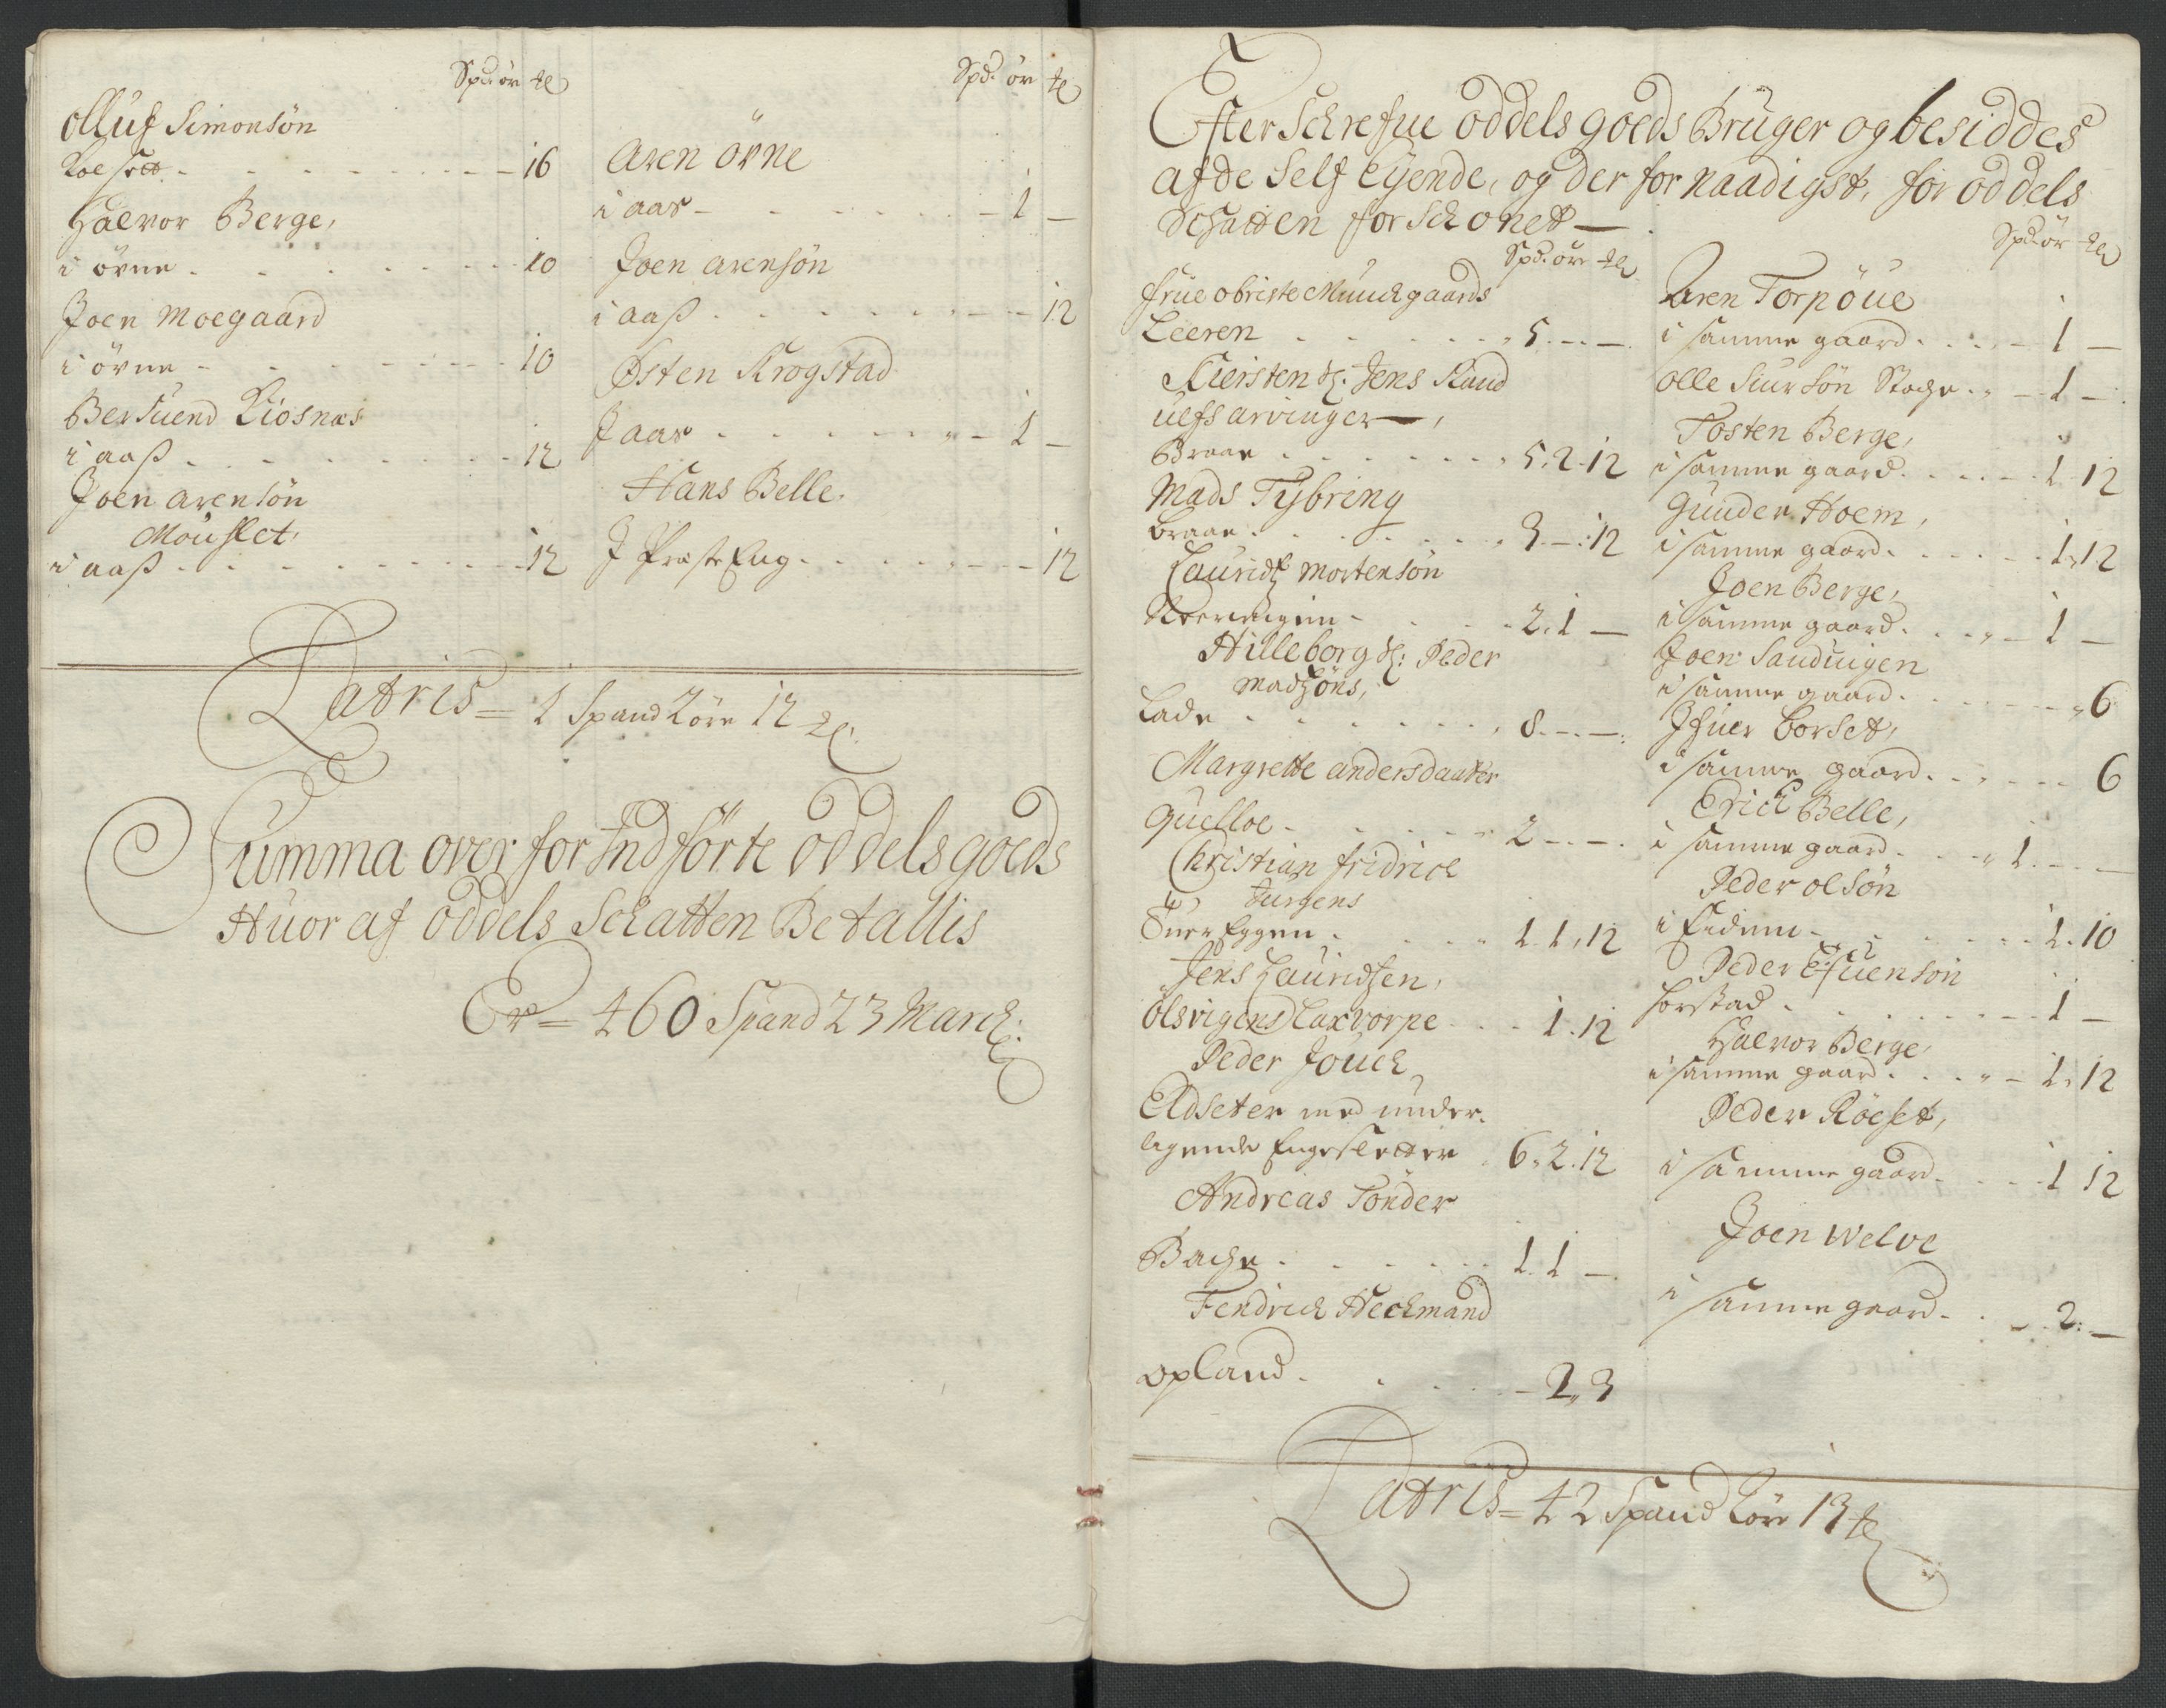 Spd ör
olluf Simonsön
Roesett - - - - - 16
Halvor Berge,
i övne - - - - - 10
Joen Moegaard
i övne - - - - - 10
Bersuend Kiosnæs
i aaß - - - - - 12
Joen arensön
Mouslet,
i aaß - - - - - 12
Spd. ör
Aren övne
i aas - - - - - 1 -
Joen arensön
i aaß - - - - - 12
Østen Krogstad
J aas - - - - - 1 -
Hans Belle.
J Præste Eng - - - - - 12
Latris = 1 Spand 2 öre 12
Summa over for Indförte oddels goeds
Huor af oddels Schatten Betallis
Er = 460 Spand 23 March:
Efter Schrefne oddels goeds Brüger og besiddes
af de Self Eÿende, og der for naadigst, for oddels
Schatten for Schonet -
Spd. ör
frue obriste Munchgaards
Leeren - - - - - 5 - -
Kiersten Sl. Jens Rand
ulfs arvinger
Braae - - - - - 5. 2. 12
Mads Tÿbring
Braae - - - - - 3 - 12
Lauridz Mortensön
- - - 2. 1 -
Hilleborg Sl: Peder
Madsöns,
Lade - - - - - 8 - -
Margrette andersdaatter
Quelloe - - - - - 2 - -
Christian fridrich
Jurgens
Eggen - - - - - 1. 1. 12
Jens Lauridsen,
Olsvigens Laxvorpe - - - 1. 12
Peder Jouch
Edseter med under
ligende Engesletter 6. 2. 12
Andreas Tönder
Bache - - - - - 1. 1 -
Fendrich Heckmand
opland - - - - - 2. 3
Spd ör
Aren Torpöue
i samme gaard - - - 1 -
Olle Siursön Stoche - - 1 -
Tosten Berge,
i samme gaard - - - 1 12
Gunder Hoem,
i samme gaard - - - 1. 12
Joen Berge,
i samme gaard - - - 1 -
Joen Sanduigen
i samme gaard - - - 6
Ifuer Borset,
i samme gaard - - - 6
Erich Belle,
i samme gaard - - - 1 - -
Peder olsön
i - - - 1. 10
Peder Efuensön
forstad - - - - - 1 -
Halvor Berge,
i samme gaard - - - 1. 12
Peder Röeset,
i samme gaard - - - 1 12
Joen Welve
i samme gaard - - - 2. -
Latris = 42 Spand 2 öre 13